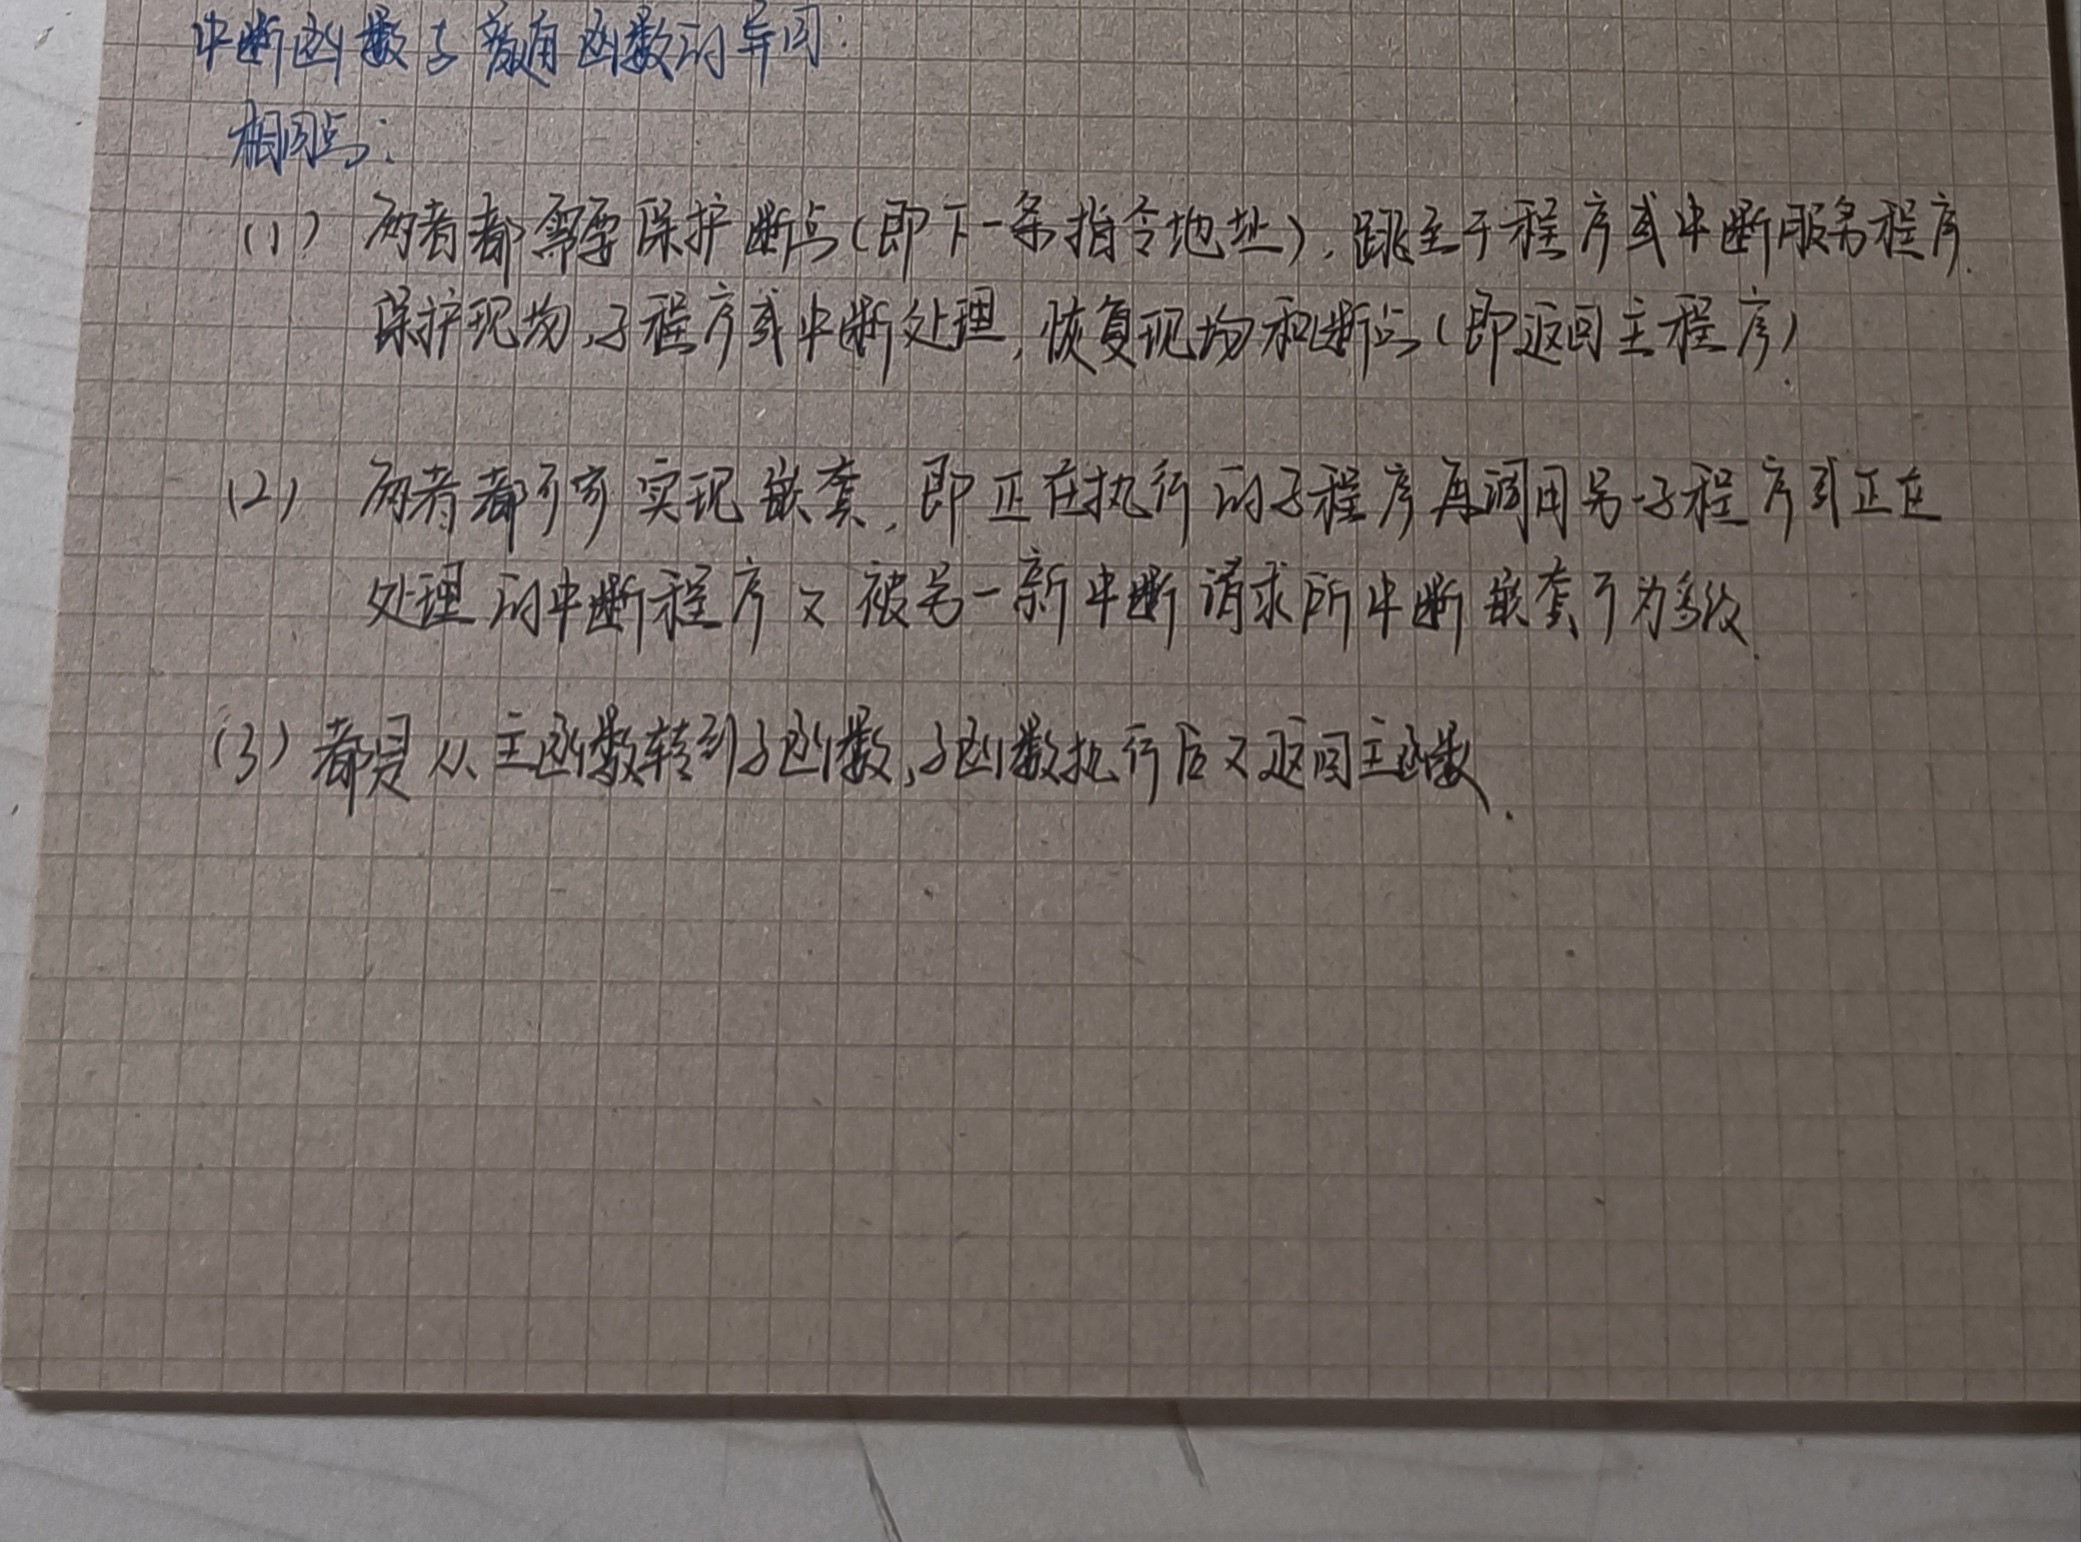 中断函数与普通函数的异同:
相同点:
(1) 两者都需要保护断点(即下一条指令地址), 跳至子程序或中断服务程序.
保护现场,子程序或中断处理, 恢复现场和断点(即返回主程序).
(2) 两者都可实现嵌套, 即正在执行的子程序再调用另一子程序或正在
处理的中断程序又被另一新中断请求所中断 嵌套可为多级.
(3) 都是从主函数转到子函数,子函数执行后又返回主函数.